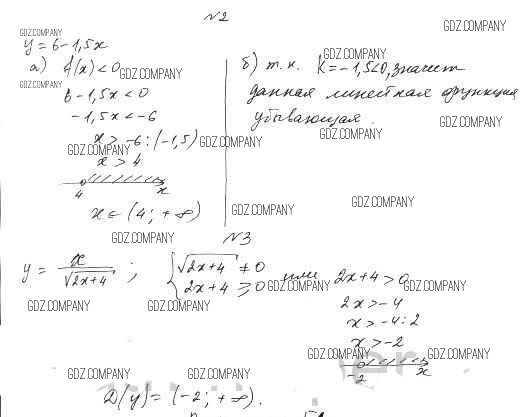 №2
GDZ.COMPANY
GDZ.COMPANY
y = 6 - 1,5x
GDZ.COMPANY
а) f(x) < 0
GDZ.COMPANY
б) т.к. K = -1,5 < 0, значит
GDZ.COMPANY
6 - 1,5x < 0
данная линейная функция
-1,5x < -6
GDZ.COMPANY
убывающая.
GDZ.COMPANY
x > -6 : (-1,5)
GDZ.COMPANY
GDZ.COMPANY
x > 4
4 x
x ∈ (4; +∞)
GDZ.COMPANY
GDZ.COMPANY
GDZ.COMPANY
№3
y = x / √2x+4 ; { √2x+4 ≠ 0
2x+4 ⩾ 0 или 2x+4 > 0
GDZ.COMPANY
GDZ.COMPANY
2x > -4
GDZ.COMPANY
GDZ.COMPANY
x > -4 : 2
x > -2
GDZ.COMPANY
GDZ.COMPANY
-2 x
GDZ.COMPANY
GDZ.COMPANY
D(y) = (-2; +∞).